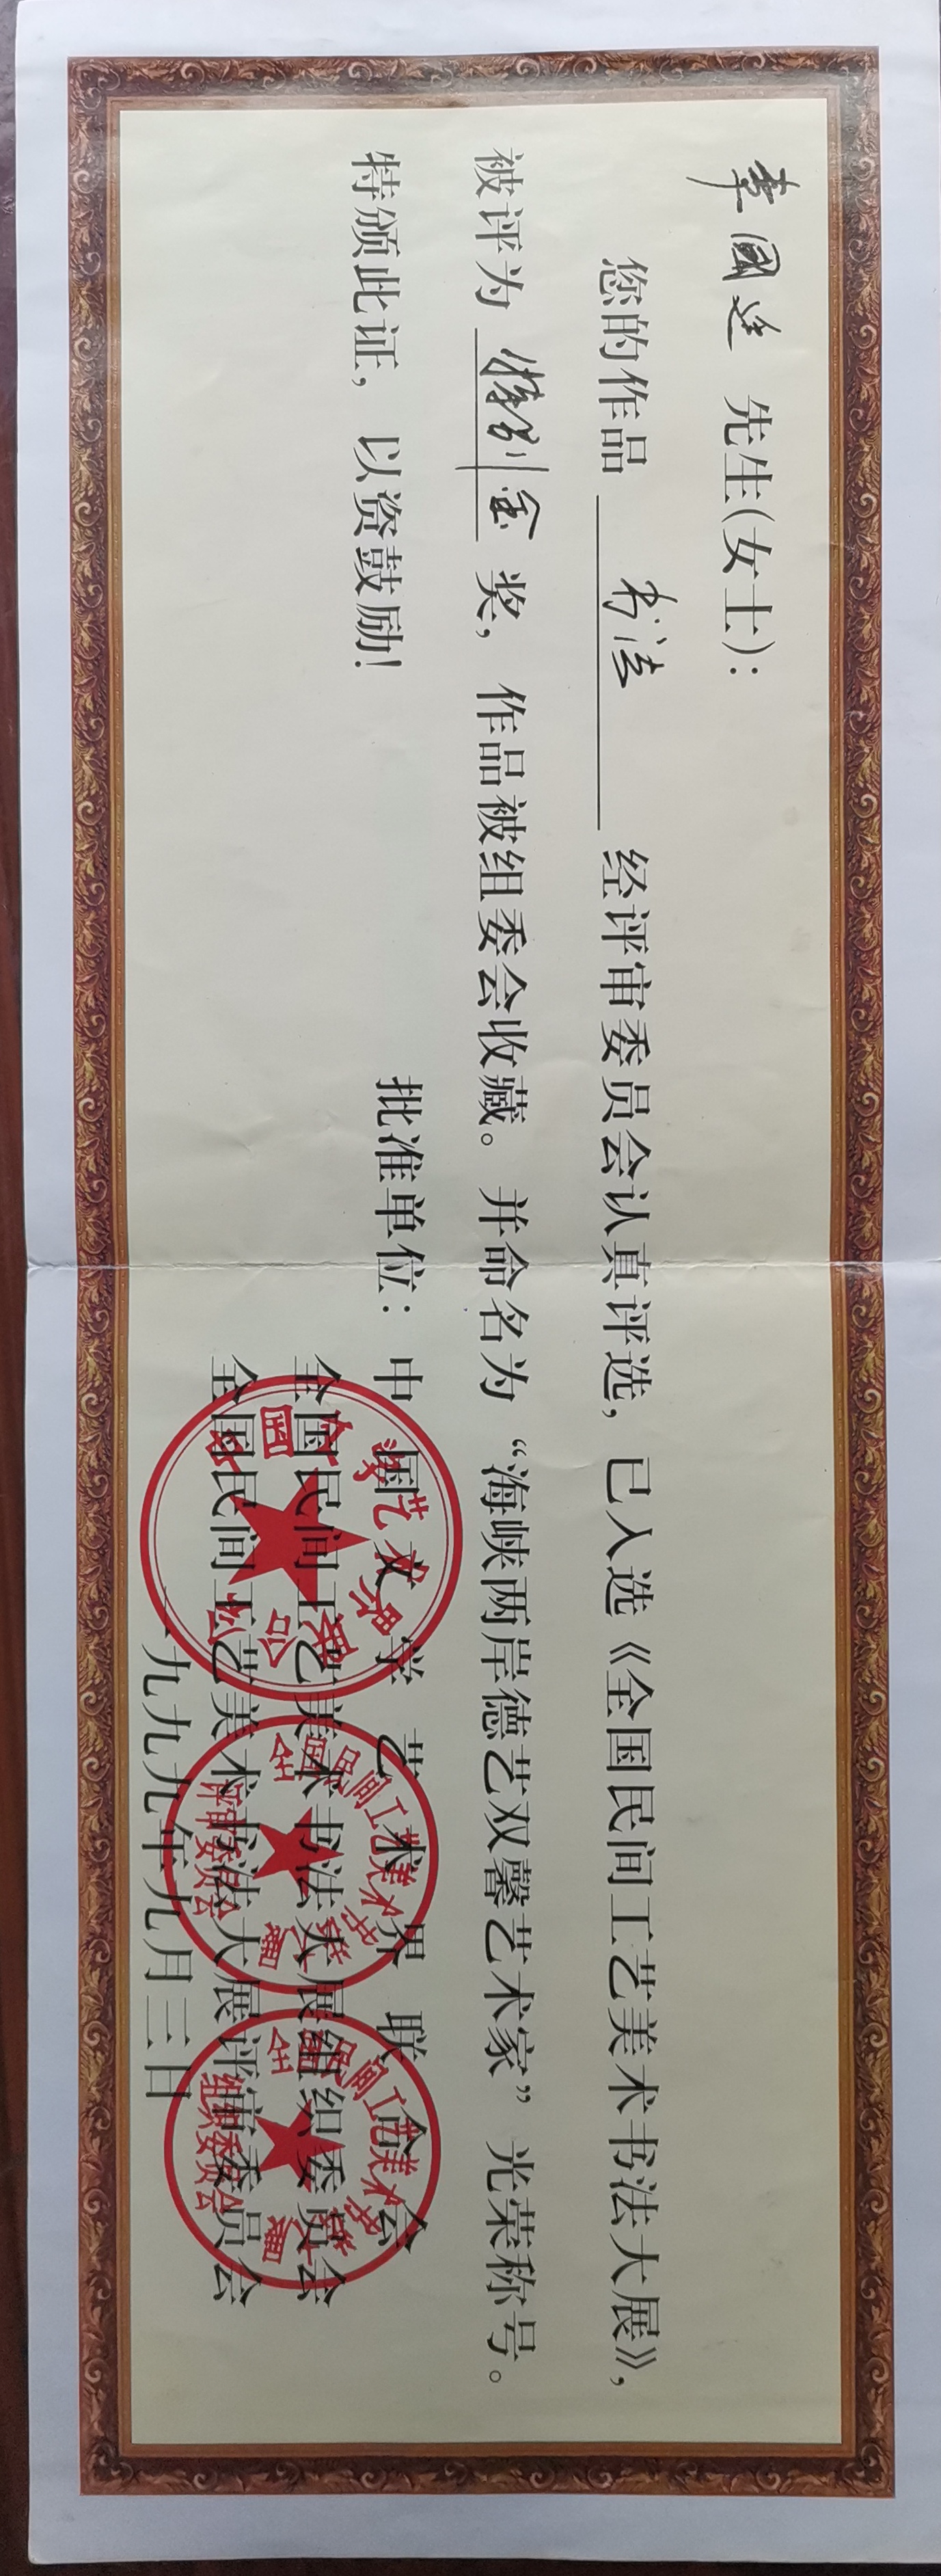 韦国连 先生(女士)：
您的作品 书法 经评审委员会认真评选，已入选《全国民间工艺美术书法大展》，
被评为 特别金 奖，作品被组委会收藏。并命名为“海峡两岸德艺双馨艺术家”光荣称号。
特颁此证，以资鼓励！
批准单位：中国文学艺术界联合会
全国民间工艺美术书法大展组织委员会
全国民间工艺美术书法大展评审委员会
一九九九年九月三日
全国民间工艺美术书法大展
评审委员会
全国民间工艺美术书法大展
组织委员会